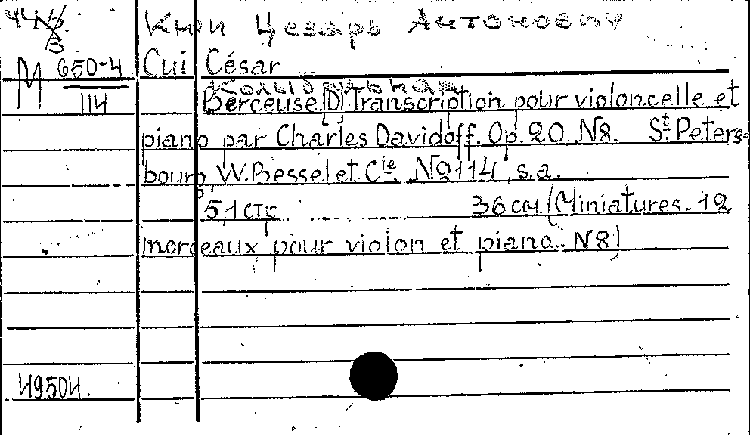 Кюи Цезарь Антонович
М 650-4
114
Cui César
Колыбельная
Berceuse [D] Transcription pour violoncelle et
piano par Charles Davidoff. Op. 20 N8. St. Peters-
bourg W. Bessel et Cie. N2114, s.a.
5,1 стр. 36 см (Miniatures. 12
morceaux pour violon et piano. N8)
4950н.